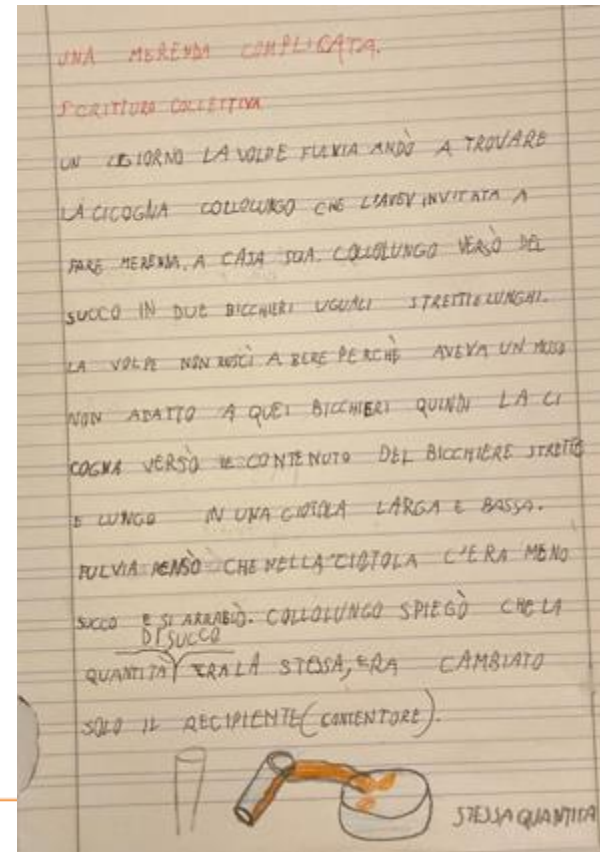 UNA MERENDA COMPLICATA.
SCRITTURA COLLETTIVA
UN GIORNO LA VOLPE FULVIA ANDÒ A TROVARE
LA CICOGNA COLLOLUNGO CHE L'AVEV INVITATA A
FARE MERENDA, A CASA SUA. COLLOLUNGO VERSÒ DEL
SUCCO IN DUE BICCHIERI UGUALI STRETTI E LUNGHI.
LA VOLPE NON RUSCÌ A BERE PERCHÈ AVEVA UN MUSO
NON ADATTO A QUEI BICCHIERI QUINDI LA CI
COGNA VERSÒ IL CONTENUTO DEL BICCHIERE STRETTO
E LUNGO IN UNA CIOTOLA LARGA E BASSA.
FULVIA PENSÒ CHE NELLA CIOTOLA C'ERA MENO
SUCCO E SI ARRABIÒ. COLLOLUNGO SPIEGÒ CHE LA
DI SUCCO
QUANTITÀ ERA LA STESSA, ERA CAMBIATO
SOLO IL RECIPIENTE (CONTENTORE).
STESSA QUANTITÀ